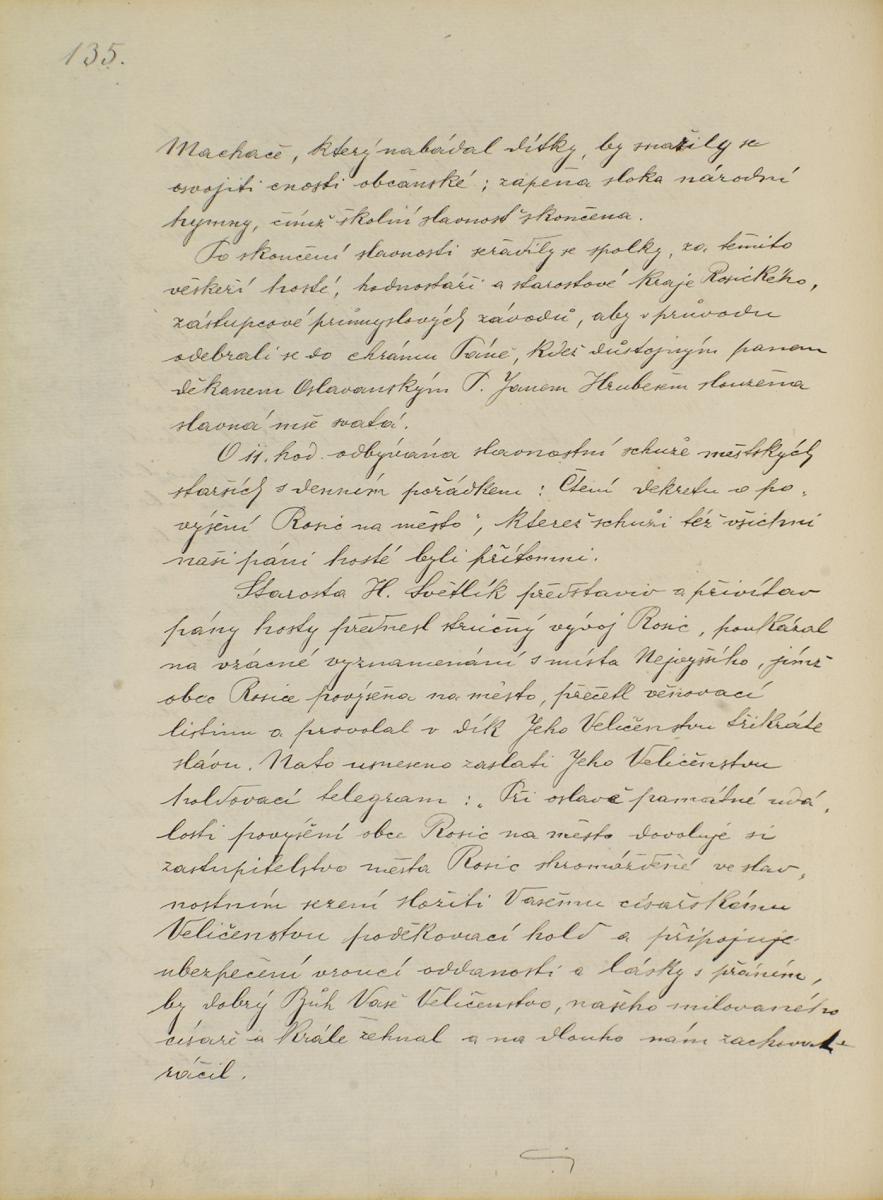 135.
Machače, který nabádal dítky, by snažily se
osvojiti cnosti občanské; zapěna sloka národní
hymny, čímž školní slavnosť skončena.
Po skončení slavnosti seřadily se spolky, za těmito
veškeří hosté, hodnostáři a starostové kraje Rosického,
zástupcové průmyslových závodů, aby v průvodu
odebrali se do chrámu Páně, kdež důstojným panem
děkanem Oslavanským P. Janem Hrubešem sloužena
slavná mše svatá.
O 11. hod. odbývána slavnostní schůze městských
starších s denním pořádkem: Čtení dekretu o po-
výšení Rosic na město", kteréž schůzi též všichni
naši páni hosté byli přítomni.
Starosta H. Světlík představiv a přivítav
pány hosty přednesl stručný vývoj Rosic, poukázal
na vzácné vyznamenání s místa Nejvyššího, jímž
obec Rosice povýšena na město, přečetl věnovací
listinu a provolal v dík Jeho Veličenstvu třikráte
slávu. Nato usneseno zaslati Jeho Veličenstvu
holdovací telegram: „Při oslavě památné udá-
losti povýšení obce Rosic na město dovoluje si
zastupitelstvo města Rosic shromážděné ve slav-
nostním sezení složiti Vašemu císařskému
Veličenstvu poděkovací hold a připojuje
ubezpečení vroucí oddanosti a lásky s přáním,
by dobrý Bůh Vaše Veličenstvo, našeho milovaného
císaře a krále žehnal a na dlouho nám zachovati
ráčil.